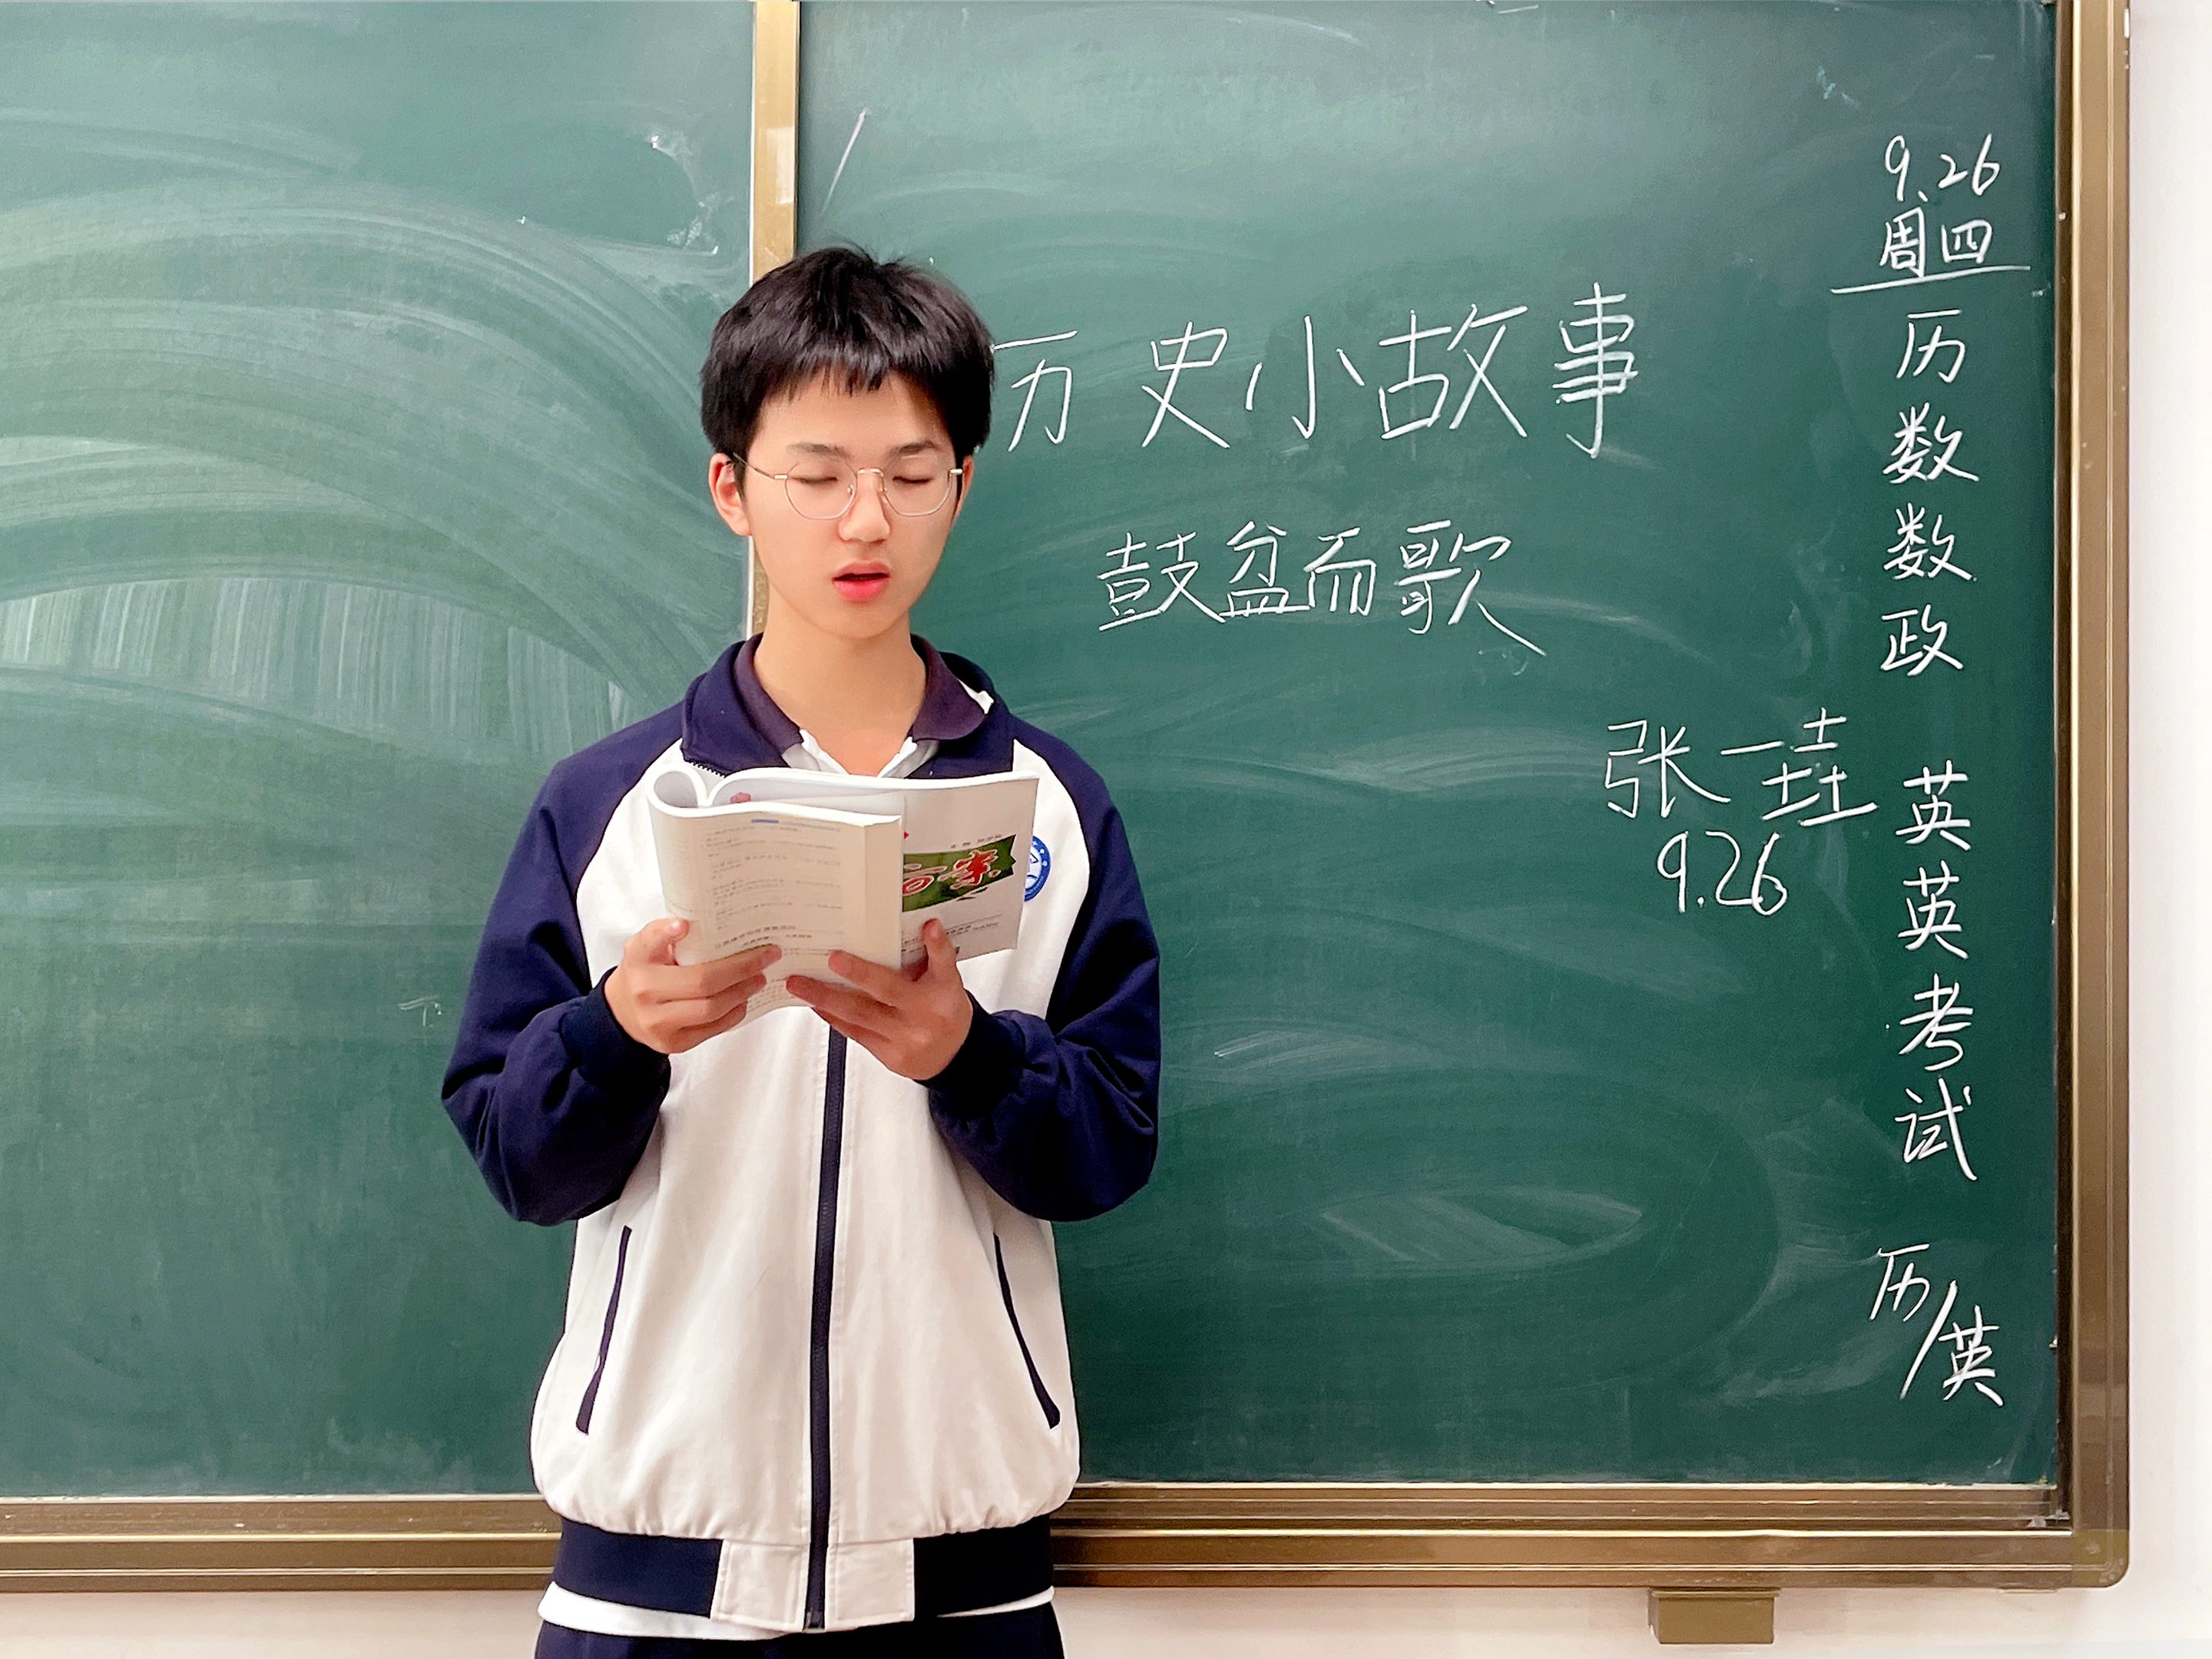 历史小故事
鼓盆而歌
张一垚
9.26
9.26
周四
历
数
数
政
英
英
考
试
历/英